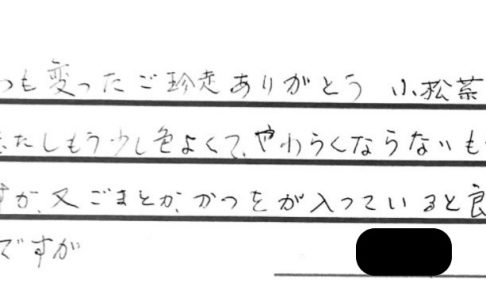 つも変ったご珍走ありがとう 小松菜
たしもう少し色よくて、やわらくならないも
すか、又ごまとか、かつをが入っていると良
ですが